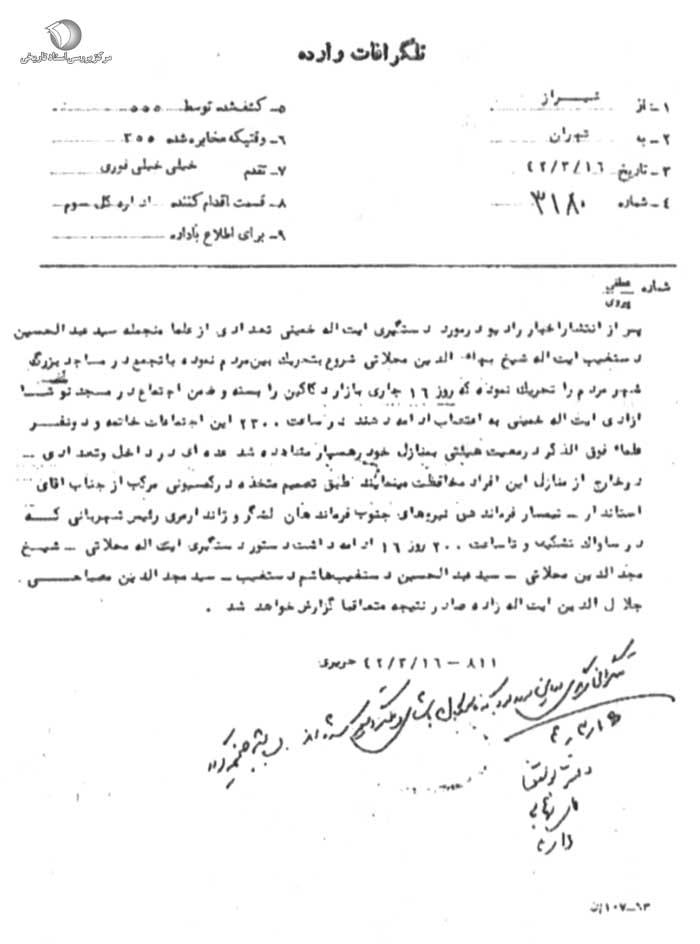 مرکز بررسی اسناد تاریخی
تلگرافات وارده
۱ـ از شیراز
۲ـ به تهران
۳ـ تاریخ ۴۲/۳/۱۶
۴ـ شماره ۳۱۸۰
۵ـ کشف شده توسط ۵۵۵
۶ـ وقتیکه مخابره شده ۲۵۵
۷ـ تقدم خیلی خیلی فوری
۸ـ قسمت اقدام کننده اداره کل سوم
۹ـ برای اطلاع باداره
شماره عطفی
پیروی
پس از انتشار اخبار رادیو درمورد دستگیری ایت اله خمینی تعدادی از علما منجمله سید عبدالحسین
دستغیب ایت اله شیخ بهاء الدین محلاتی شروع بتحریک بین مردم نموده باتجمع در مساجد بزرگ
شهر مردم را تحریک نموده که روز ۱۶ جاری بازار دکاکین را بسته و ضمن اجتماع در مسجد نو تا
ازادی ایت اله خمینی به اعتصاب ادامه دهند در ساعت ۲۳۰۰ این اجتماعات خاتمه و دونفر
علماء فوق الذکر درمعیت هیئتی بمنازل خود رهسپار مشاهده شد عده ای در داخل وتعدادی ـ
درخارج از منازل این افراد محافظت مینمایند طبق تصمیم متخذه درکمسیونی مرکب از جناب اقای
استاندار ـ تیمسار فرماندهی نیروهای جنوب فرماندهان لشگر و ژاندارمری رئیس شهربانی که
در ساواک تشکیل و تا ساعت ۲۰۰ روز ۱۶ ادامه داشت دستور دستگیری ایت اله محلاتی ـ شیخ
مجد الدین محلاتی ـ سید عبدالحسین دستغیب هاشم دستغیب ـ سید مجد الدین مصباحی
جلال الدین ایت اله زاده صادر نتیجه متعاقبا گزارش خواهد شد .
۸۱۱ ـ ۴۲/۳/۱۶ حریری
۶۳ـ۱۰۷ن